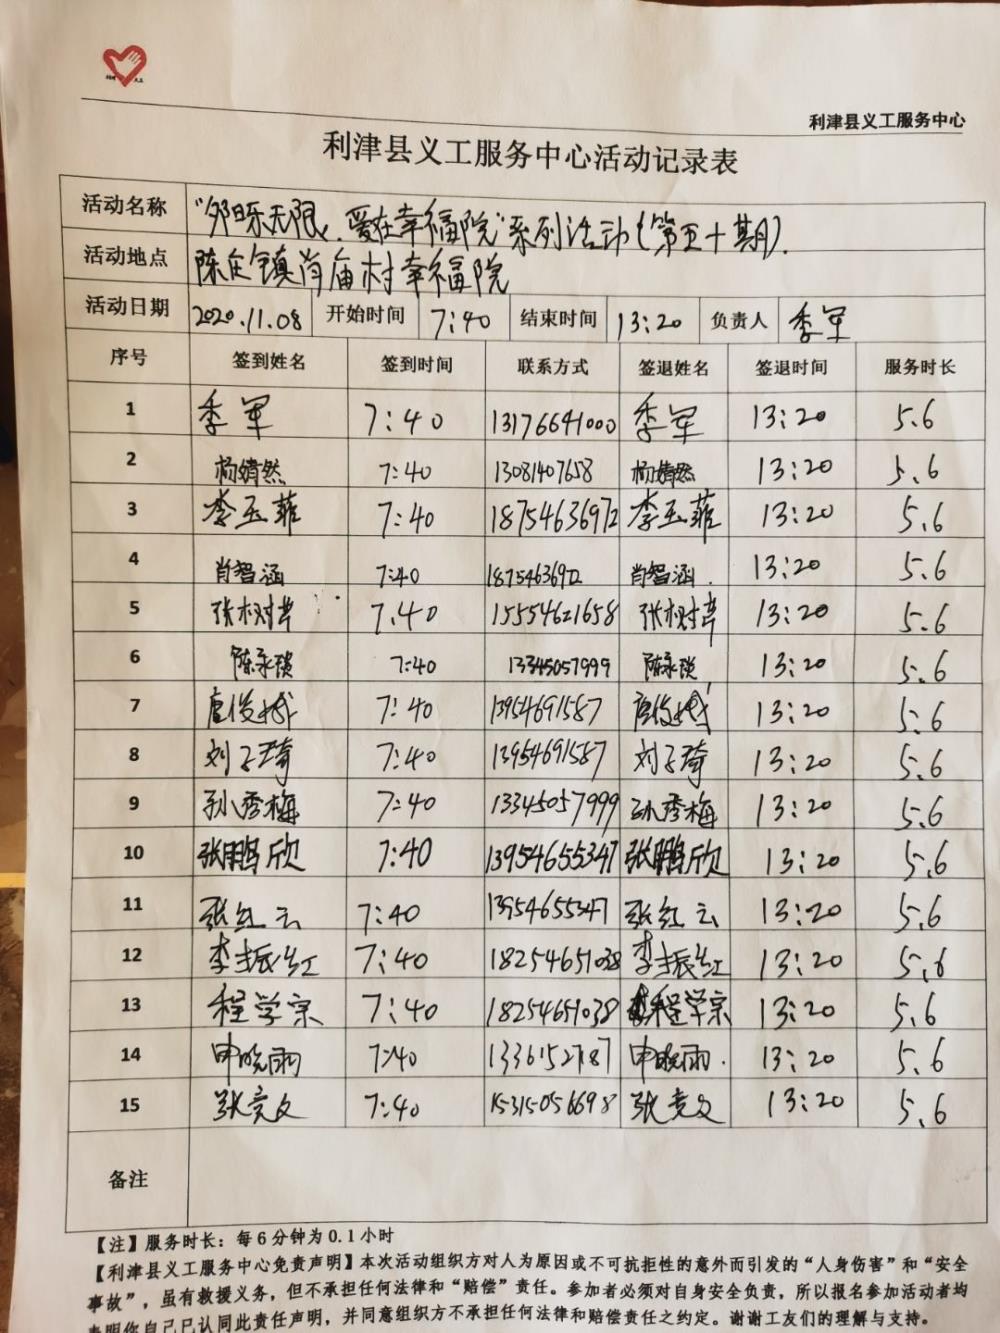 利津县义工服务中心
利津县义工服务中心活动记录表
活动名称 “夕阳乐无限、爱在幸福院”系列活动(第五十期).
活动地点 陈庄镇肖庙村幸福院
活动日期 2020.11.08 开始时间 7:40 结束时间 13:20 负责人 季军
序号 签到姓名 签到时间 联系方式 签退姓名 签退时间 服务时长
1 季军 7:40 13176641000 季军 13:20 5.6
2 杨婧然 7:40 13081407658 杨婧然 13:20 5.6
3 李玉菲 7:40 18754636972 李玉菲 13:20 5.6
4 肖智涵 7:40 18754636972 肖智涵. 13:20 5.6
5 张树芹 7:40 15554621658 张树芹 13:20 5.6
6 陈永琰 7:40 13345057999 陈永琰 13:20 5.6
7 7:40 13954691587 13:20 5.6
8 刘子琦 7:40 13954691587 刘子琦 13:20 5.6
9 孙秀梅 7:40 13345057999 孙秀梅 13:20 5.6
10 张鹏欣 7:40 13954655347 张鹏欣 13:20 5.6
11 张红云 7:40 13954655347 张红云 13:20 5.6
12 李振红 7:40 18254651038 李振红 13:20 5.6
13 程学宗 7:40 18254651038 程学宗 13:20 5.6
14 申晓雨 7:40 申晓雨. 13:20 5.6
15 张竞文 7:40 15315056698 张竞文 13:20 5.6
备注
【注】服务时长：每6分钟为0.1小时
【利津县义工服务中心免责声明】本次活动组织方对人为原因或不可抗拒性的意外而引发的“人身伤害”和“安全
事故”，虽有救援义务，但不承担任何法律和“赔偿”责任。参加者必须对自身安全负责，所以报名参加活动者均
表明你自己已认同此责任声明，并同意组织方不承担任何法律和赔偿责任之约定。谢谢工友们的理解与支持。